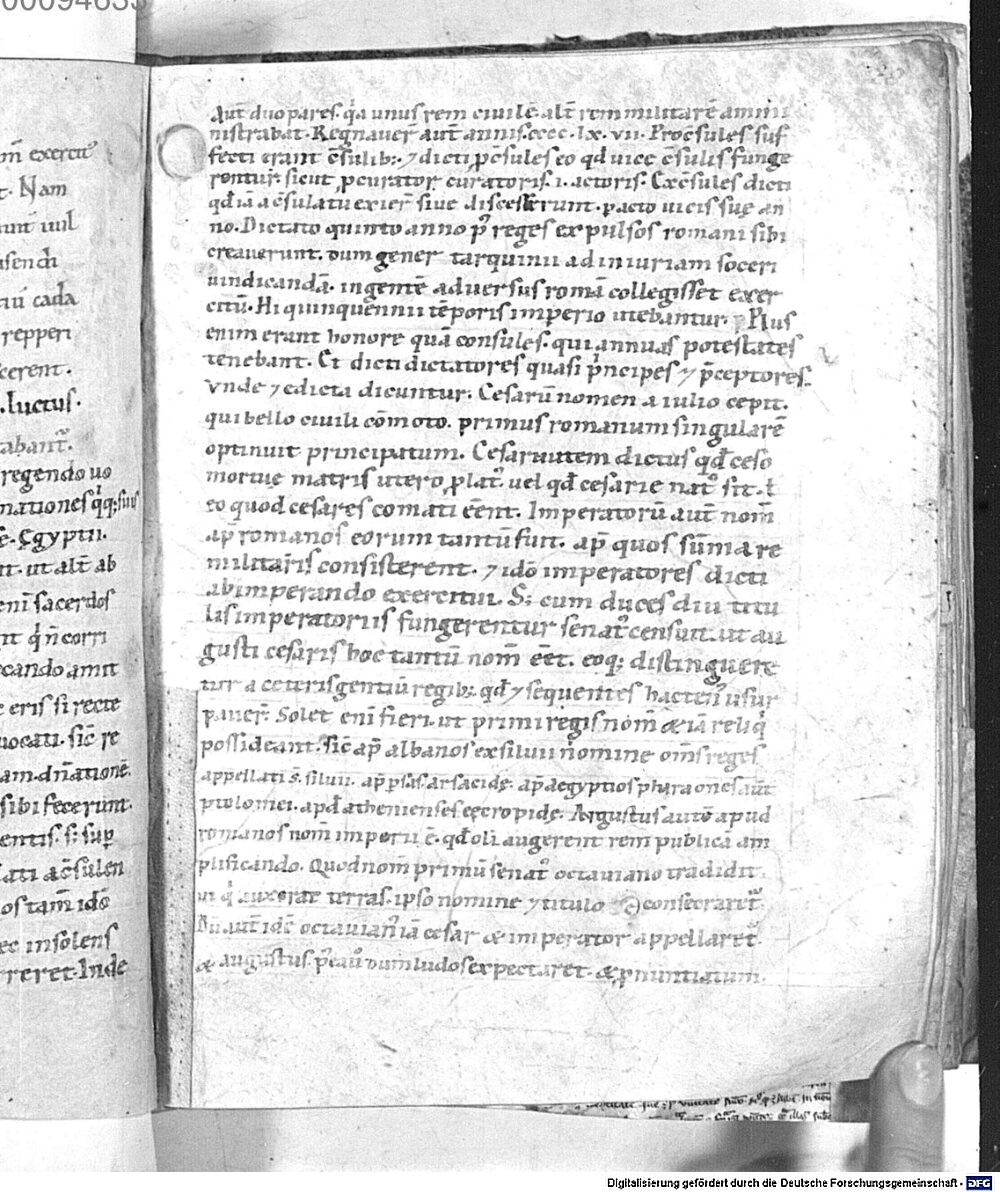 00094635
m̄ exercit᷒
t. Nam
unt̄ uul
usench
tiū cada
repperi
cerent.
. luctus.
abant᷒.
regendo uo
nationes q́q; suis
ę. Ęgyptii.
nt. ut alt̄ ab
eni sacerdos
nt q́ n̄ corri
ecando amit
e eris si recte
uocati. sic̄ re
am. dn̄atione.
sibi fecerunt.
entis. s; sup̱
ati a c̄sulen
os tam̄ idō
ec insolens
rreret. Inde
Aut̄ duo pares. q́a unus rem ciuile. alt̄ rem militarē ammi
nistrabat. Regnauer̄ aut̄ annis. cccc. lx. vii. Proc̄sules suf
fecti erant c̄sulib;. ⁊ dicti p̱c̄sules eo qd̄ uice c̄sulis funge
rentur. sicut p̱curator curatoris. i. actoris. Exc̄sules dicti
qd̄ ia a c̄sulatu exier̄ siue discesserunt. p̱acto uicis suę an
no. Dictato quinto anno p᷒ reges expulsos romani sibi
creauerunt. dum gener tarquinii ad iniuriam soceri
uindicandā. ingentē aduersus romā collegisset exer
citū. Hi quinquennii tēporis imperio utebantur. Plus
enim erant honore quā consules. qui annuas potestates
tenebant. Et dicti dictatores quasi ṕncipes ⁊ p̄ceptores.
Vnde ⁊ edicta dicuntur. Cesarū nomen a iulio cepit.
qui bello ciuili cōmoto. primus romanum singularē
optinuit principatum. Cesar autem dictus qd̄ ceso
mortuę matris utero p̱lat᷒. uel qd̄ cesarie nat᷒ sit. ł
eo quod cesares comati eēnt. Imperatorū aut̄ nom̄
ap̄ romanos eorum tantū fuit. ap̄ quos sūma re
militaris consisterent. ⁊ idō imperatores dicti
ab imperando exercitui. S; cum duces diu titu
lis imperatoriis fungerentur senat᷒ censuit. ut au
gusti cesaris hoc tantū nom̄ eēt. eoq; distinguere
tur a ceteris gentiū regib;. qd̄ ⁊ sequentes hacten᷒ usur
pauer̄. Solet eni fieri. ut primi regis nom̄ & iā reliq́
possideant. Sic̄ ap̄ albanos ex siluii nomine om̄s reges
appellati s̄. siluii. ap̄ p̱sas arsacidę. ap̄ aegyptios pharaones aut̄
ptolomei. apd̄ athenienses cecropidę. Augustus autō apud
romanos nom̄ imperii ē. qd̄ oli augerent rem publicā am
plificando. Quod nom̄ primū senat᷒ octauiano tradidit.
ut q́ auxerat terras. ipso nomine ⁊ titulo consecraret᷒.
Dū. aut̄ idē octauian᷒ iā cesar & imperator appellaret᷒.
& augustus. dum ludos expectaret. & p̱nuntiatum.
Digitalisierung gefördert durch die Deutsche Forschungsgemeinschaft - DFG